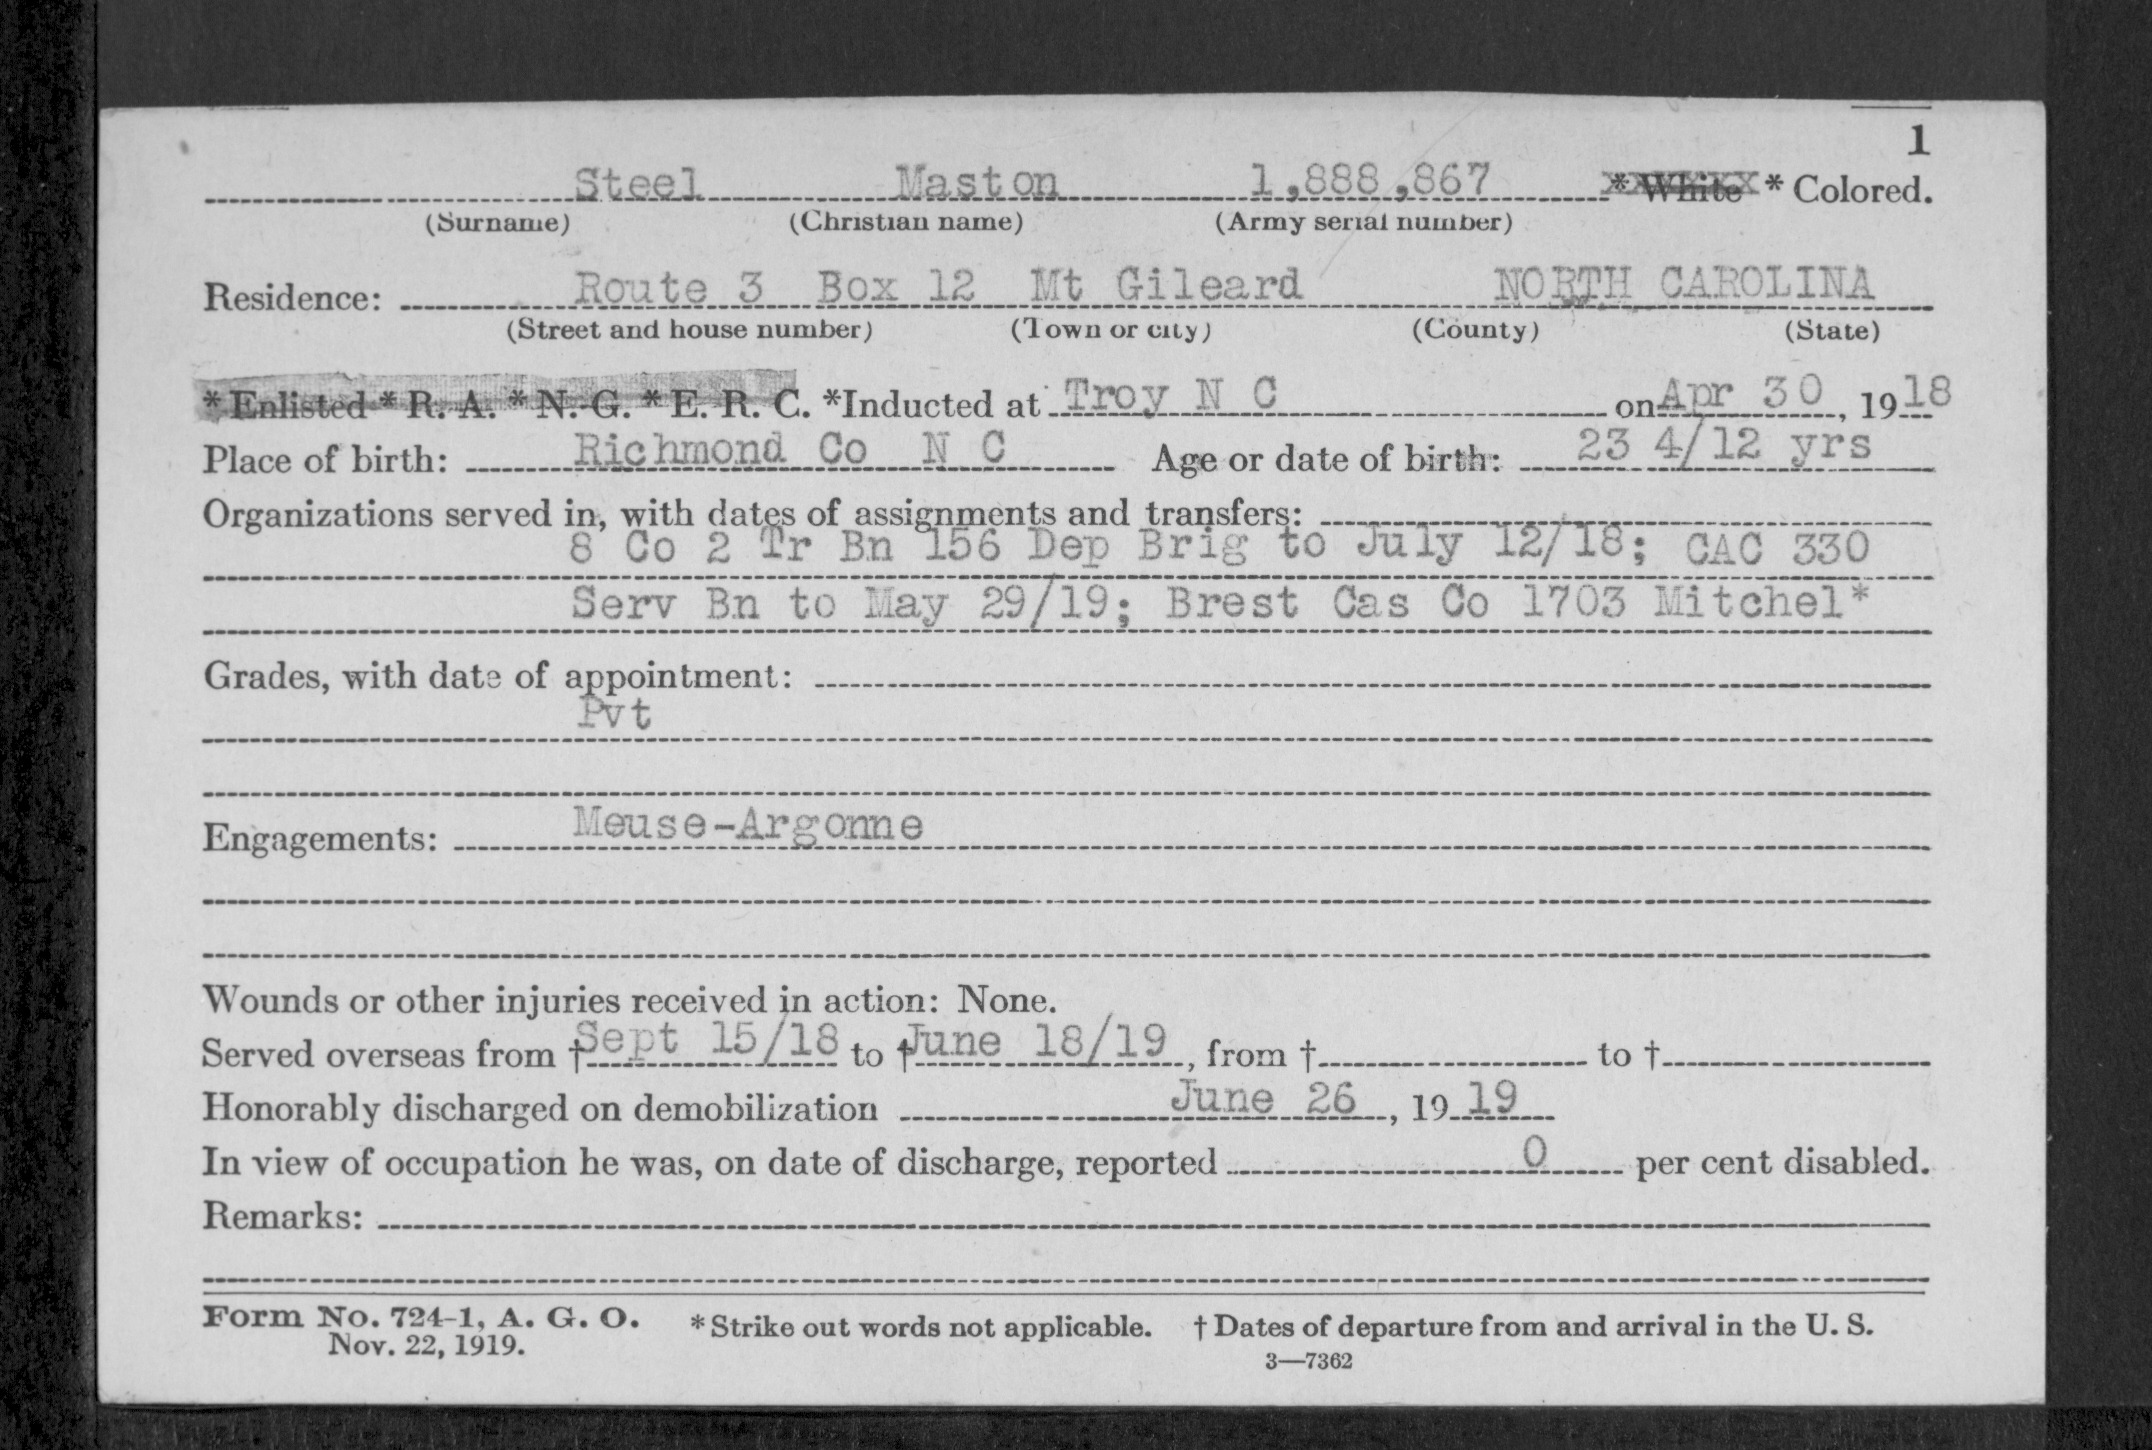 1
Steel Maston 1,888,867 * White * Colored.
(Surname) (Christian name) (Army serial number)
Residence: Route 3 Box 12 Mt Gileard NORTH CAROLINA
(Street and house number) (Town or city) (County) (State)
* Enlisted * R. A. * N. G. * E. R. C. *Inducted at Troy N C on Apr 30, 1918
Place of birth: Richmond Co N C Age or date of birth: 23 4/12 yrs
Organizations served in, with dates of assignments and transfers:
8 Co 2 Tr Bn 156 Dep Brig to July 12/18; CAC 330
Serv Bn to May 29/19; Brest Cas Co 1703 Mitchel*
Grades, with date of appointment:
Pvt
Engagements: Meuse-Argonne
Wounds or other injuries received in action: None.
Served overseas from † Sept 15/18 to † June 18/19, from † to †
Honorably discharged on demobilization June 26, 1919
In view of occupation he was, on date of discharge, reported 0 per cent disabled.
Remarks:
Form No. 724-1, A. G. O. * Strike out words not applicable. † Dates of departure from and arrival in the U. S.
Nov. 22, 1919. 3—7362